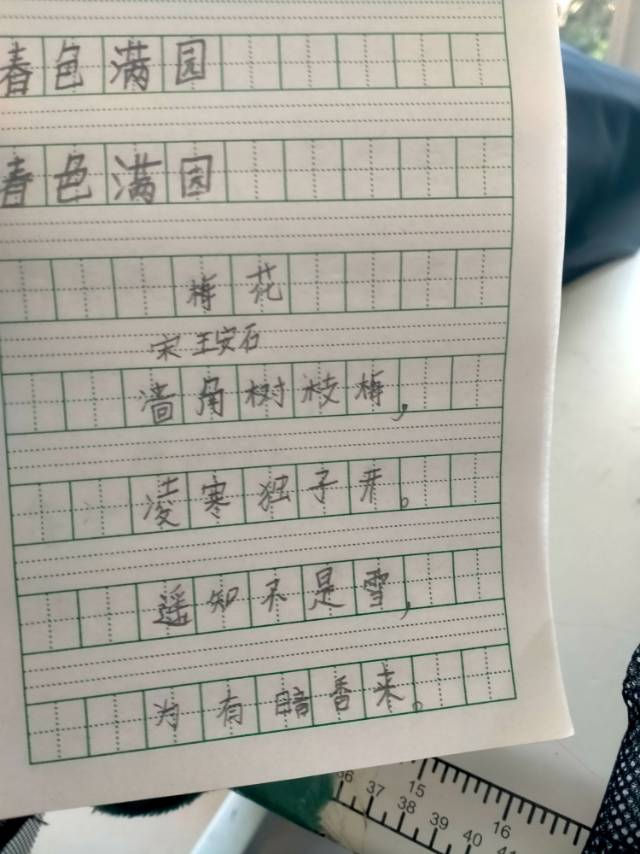 春色满园
春色满园
梅花
宋 王安石
墙角树枝梅，
凌寒独子开。
遥知不是雪，
为有暗香来。
15 16
36 37 38 39 40 41